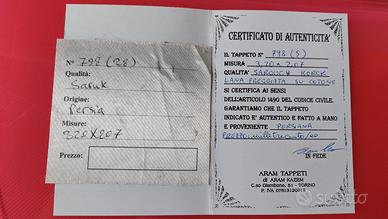 N° 798 (28)
Qualità:
Saruk
Origine:
Persia
Misure:
320x207
Prezzo:
CERTIFICATO DI AUTENTICITA'
IL TAPPETO N° 798 (S)
MISURA 3,20 x 2,07
QUALITA' SAROUGH KORCK
LANA PREGGIATA SU COTONE
SI CERTIFICA AI SENSI
DELL'ARTICOLO 1490 DEL CODICE CIVILE.
GARANTIAMO CHE IL TAPPETO
INDICATO E' AUTENTICO E FATTO A MANO
E PROVENIENTE PERSIANA
PREZZO: milletrecento/00
IN FEDE
ARAM TAPPETI
di ARAM KAZEM
C.so Giambone, 51 - TORINO
P. IVA 07813120015
subito